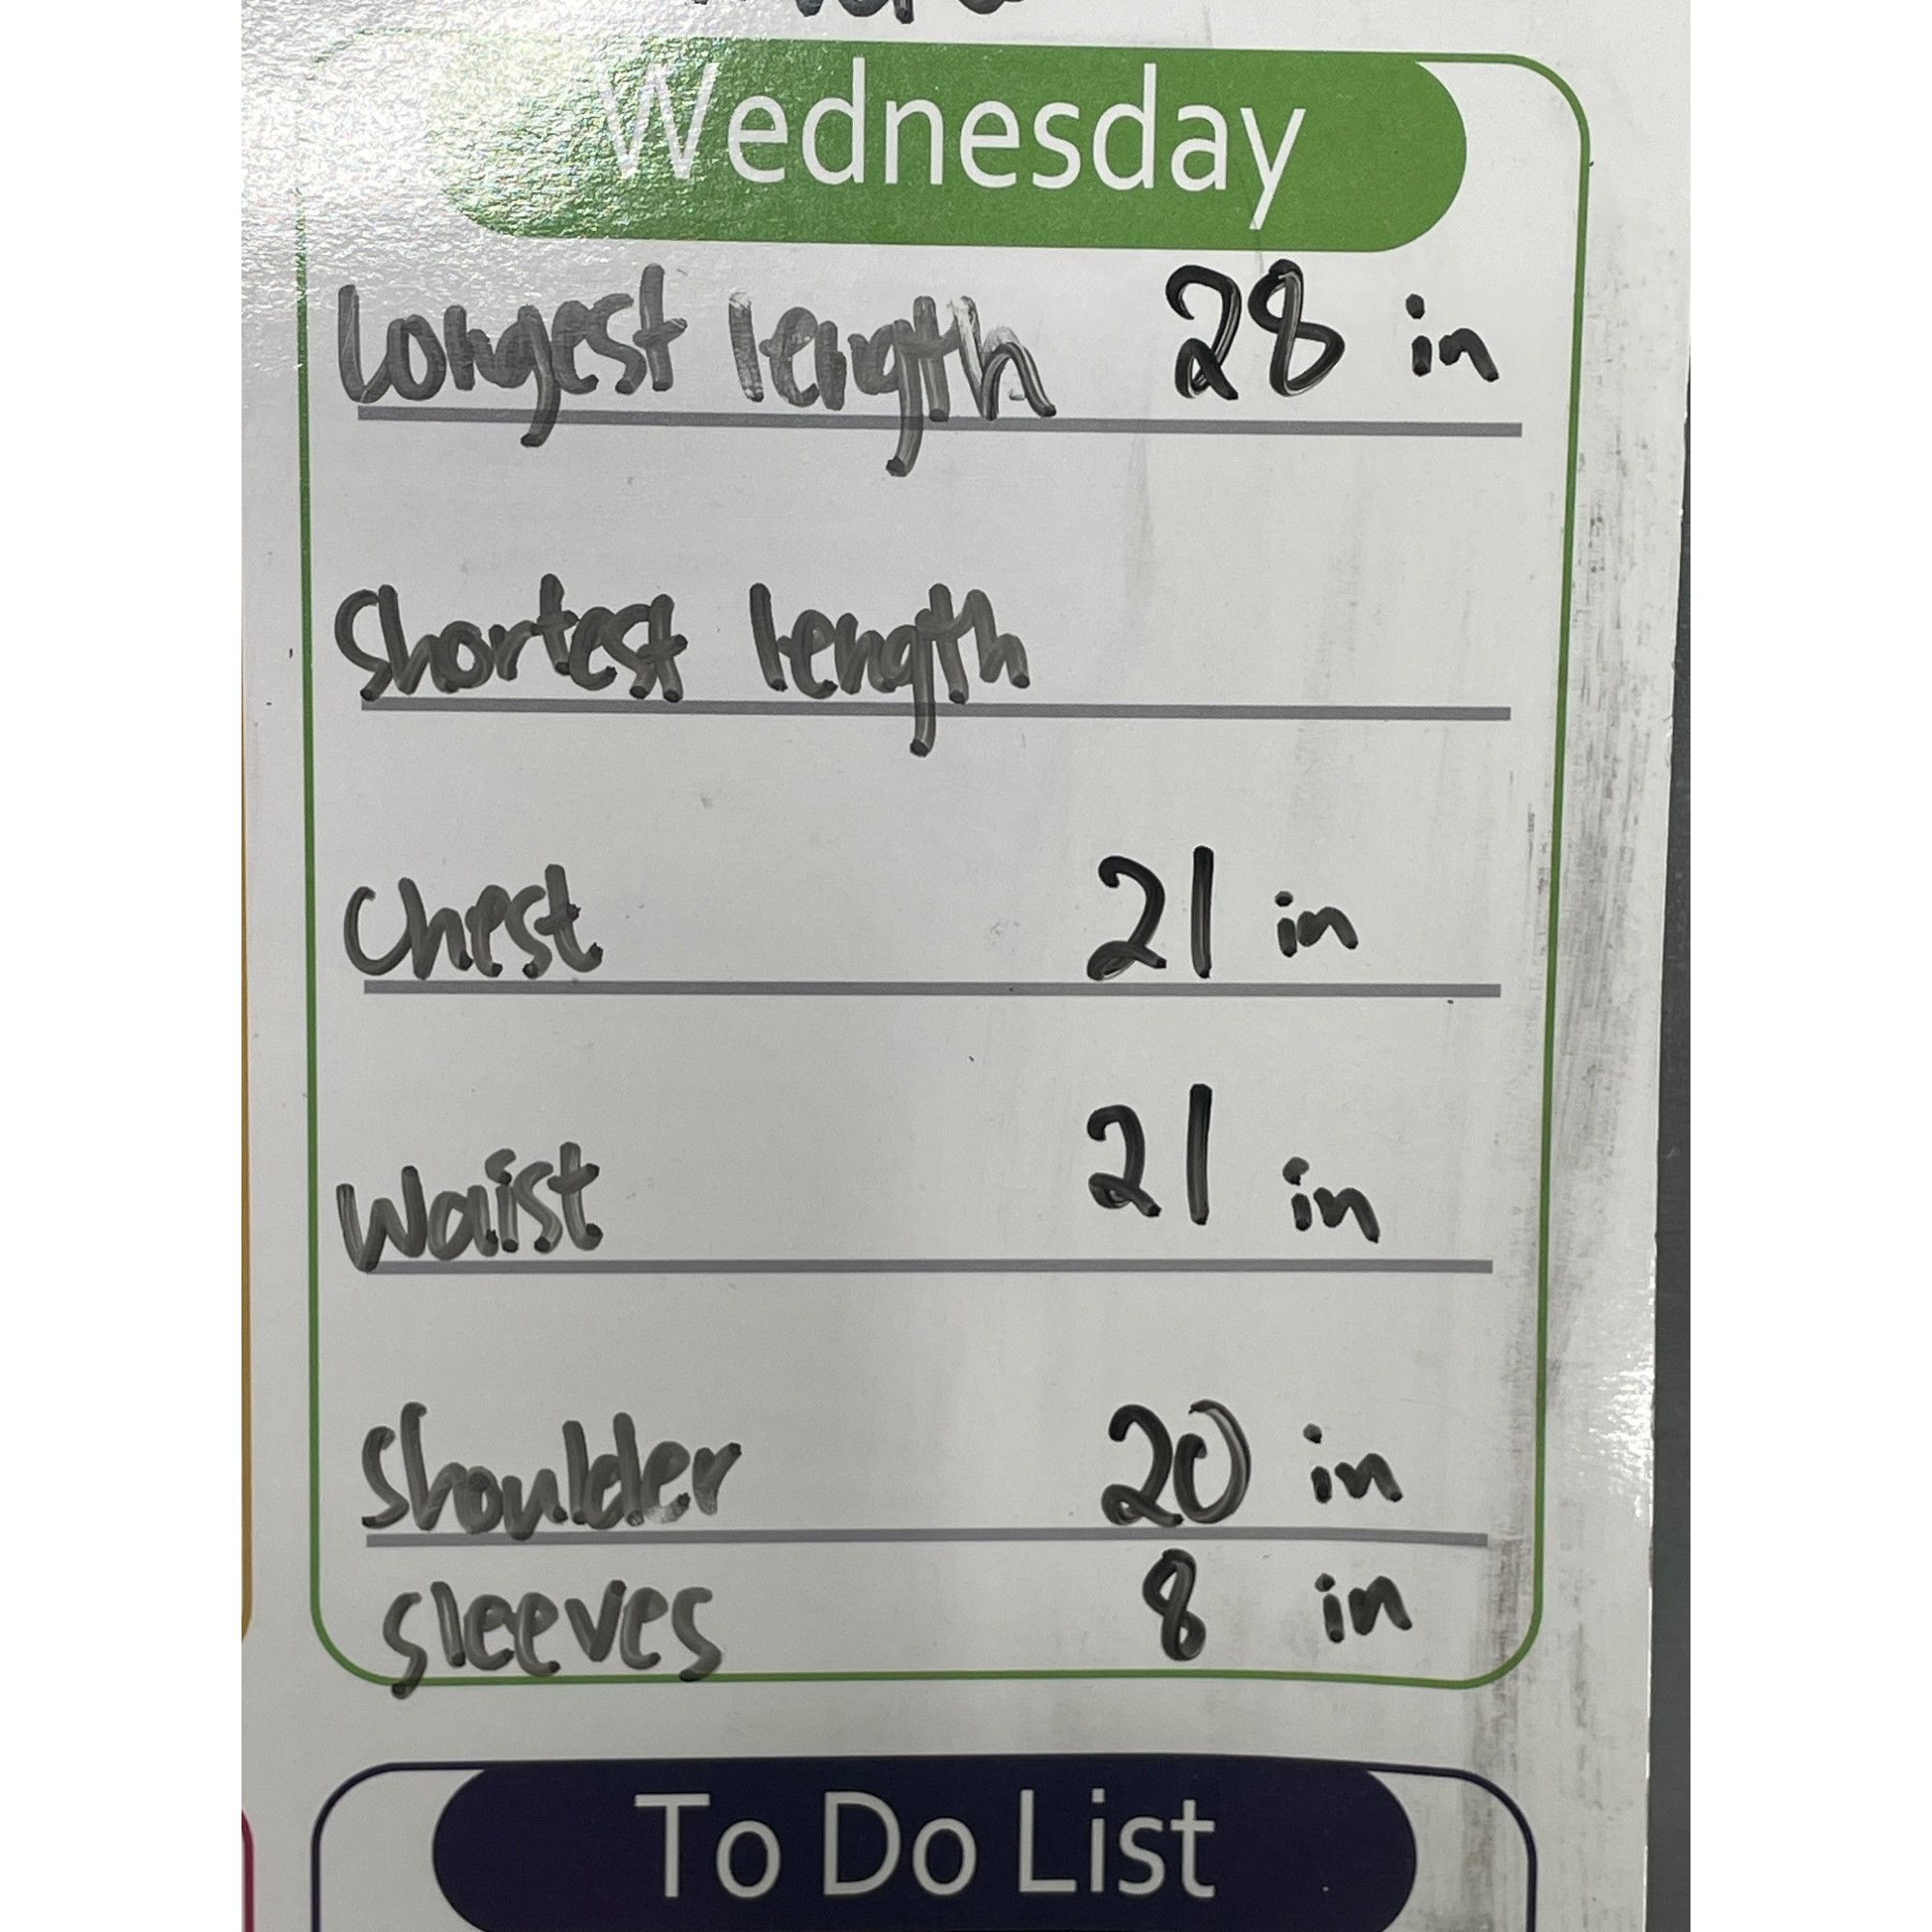 Wednesday
Longest length 28 in
Shortest length
Chest 21 in
Waist 21 in
Shoulder 20 in
Sleeves 8 in
To Do List